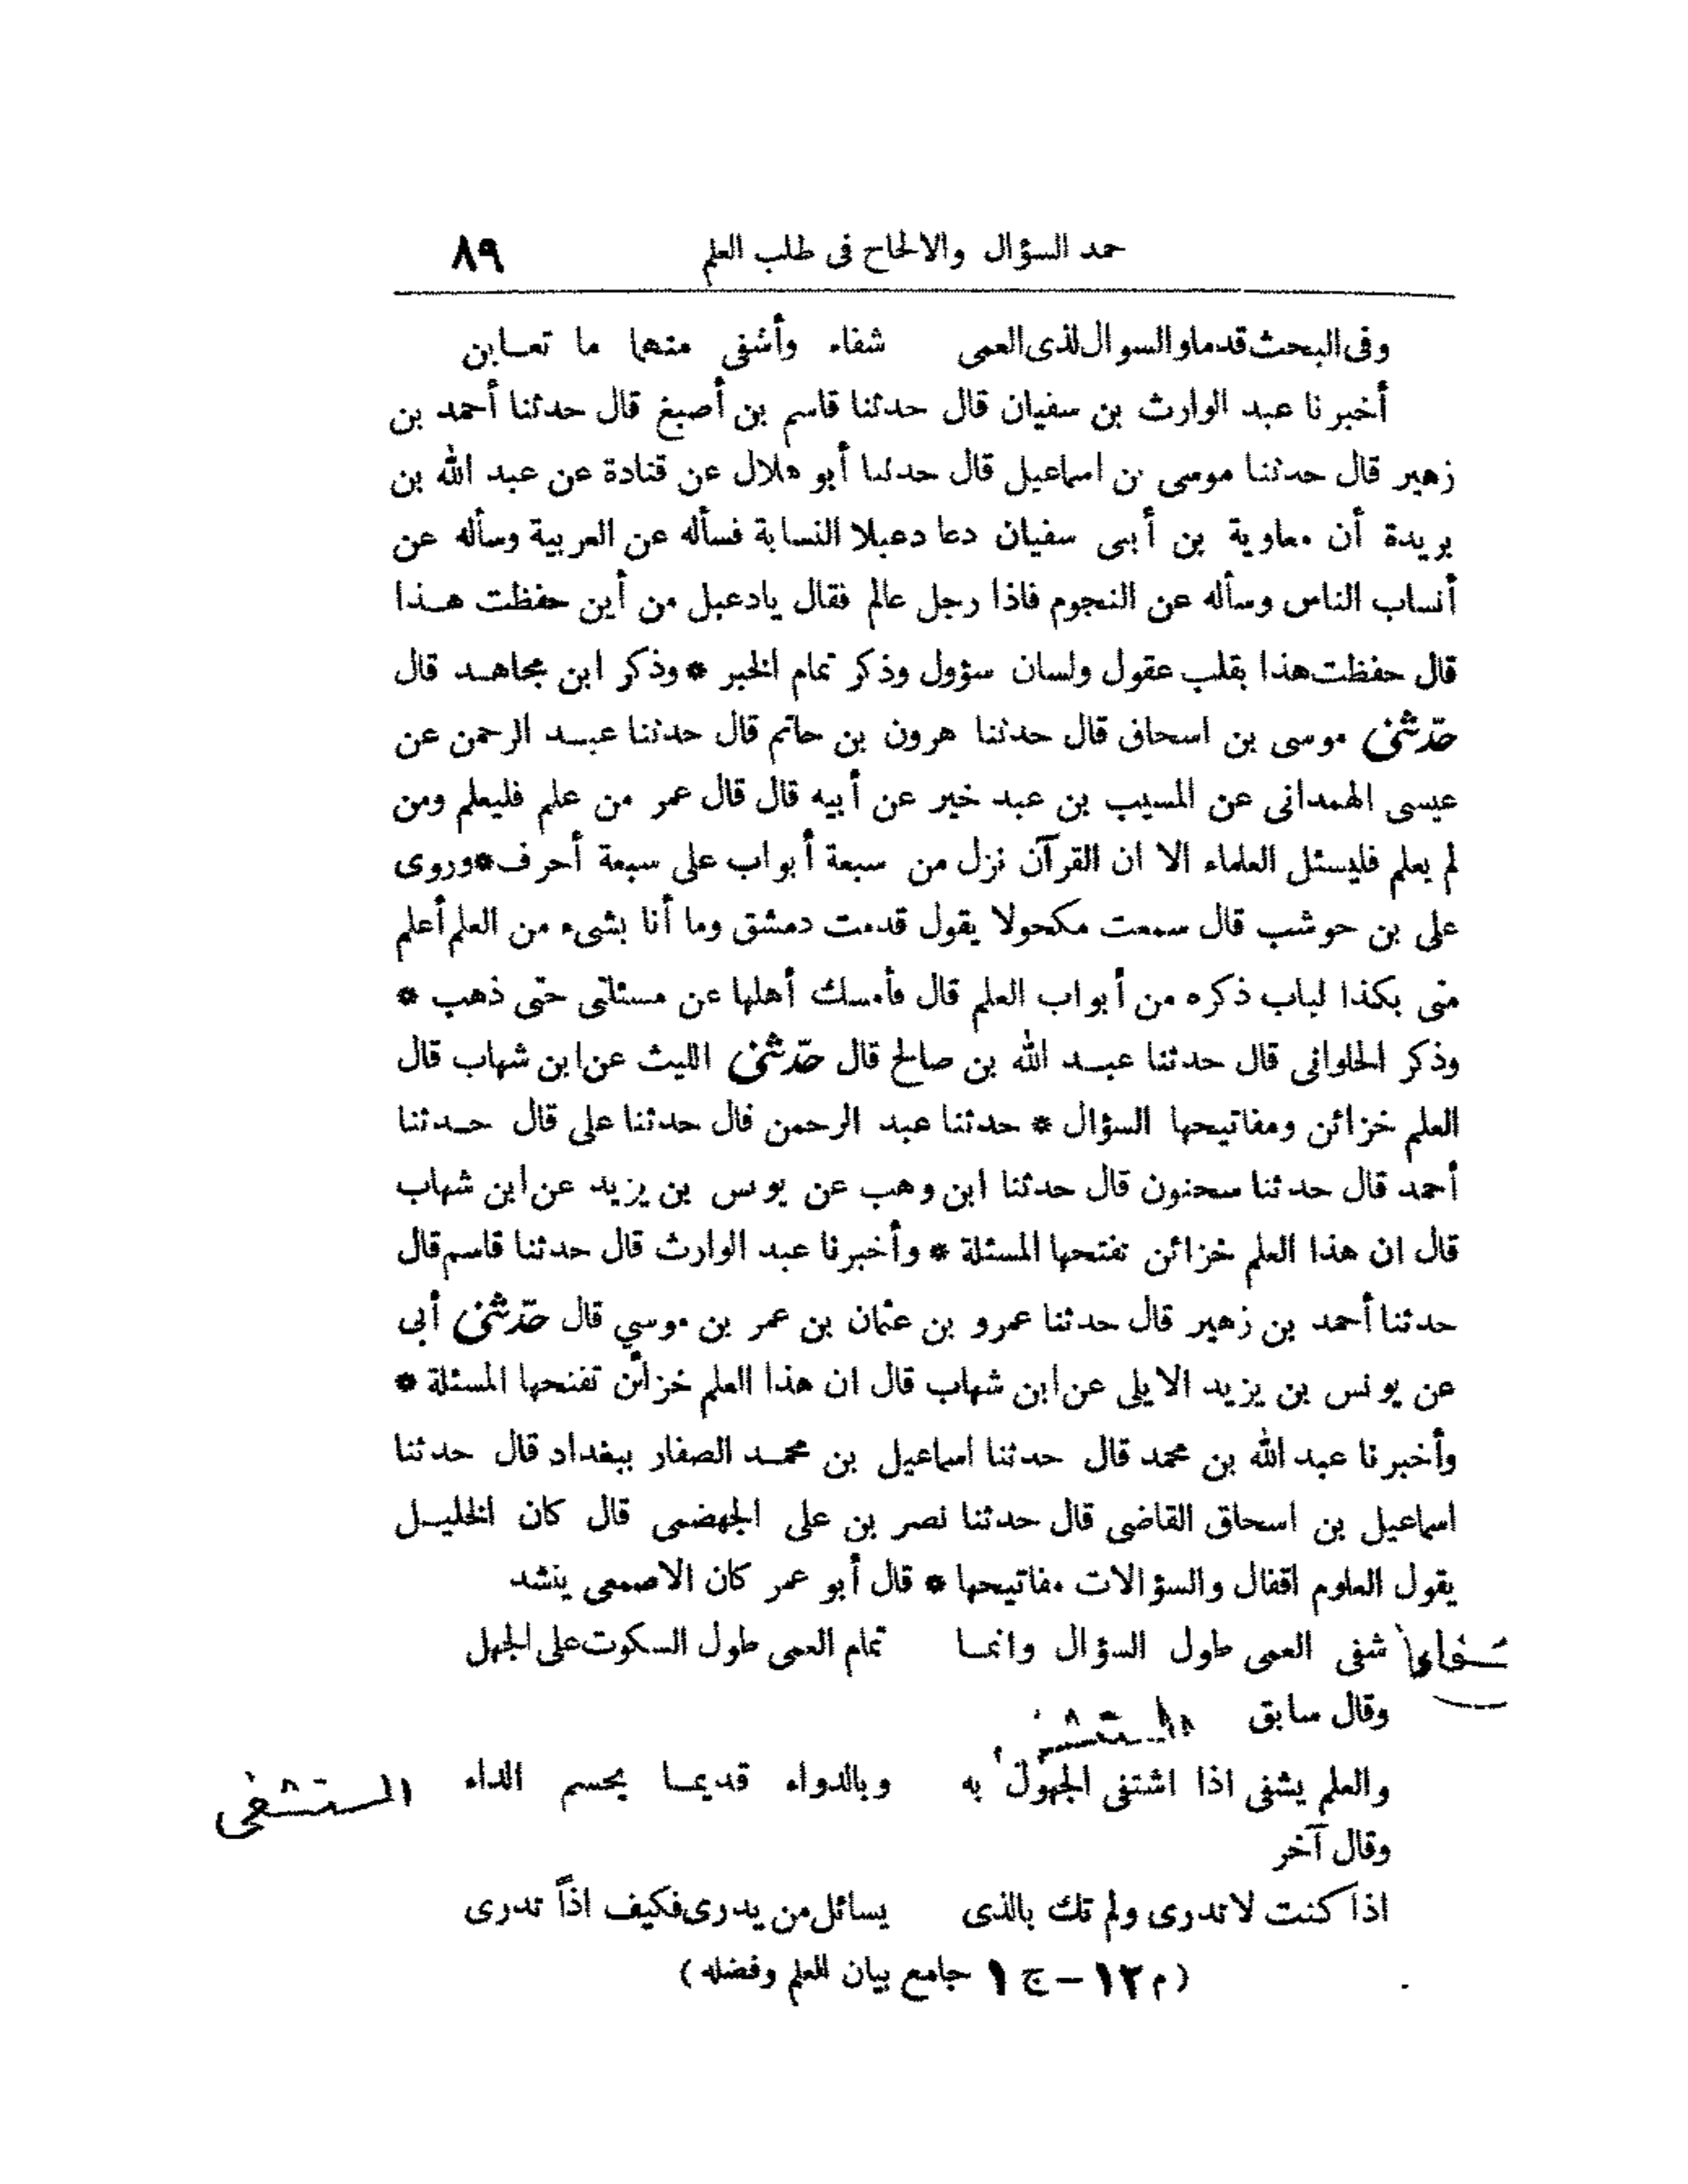 حمد السؤال والالحاح فى طلب العلم ٨٩
وفى البحث قدما والسوال لذى العمى شفاء وأشفى منهما ما تعاين
أخبرنا عبد الوارث بن سفيان قال حدثنا قاسم بن أصبغ قال حدثنا أحمد بن
زهير قال حدثنا موسى بن اسماعيل قال حدثنا أبو هلال عن قتادة عن عبد الله بن
بريدة أن معاوية بن أبى سفيان دعا دعبلا النسابة فسأله عن العربية وسأله عن
أنساب الناس وسأله عن النجوم فاذا رجل عالم فقال يادعبل من أين حفظت هـذا
قال حفظت هذا بقلب عقول ولسان سؤول وذكر تمام الخبر * وذكر ابن مجاهـد قال
حدّثنى موسى بن اسحاق قال حدثنا هرون بن حاتم قال حدثنا عبـد الرحمن عن
عيسى الهمدانى عن المسيب بن عبد خير عن أبيه قال قال عمر من علم فليعلم ومن
لم يعلم فليسئل العلماء الا ان القرآن نزل من سبعة أبواب على سبعة أحرف * وروى
على بن حوشب قال سمعت مكحولا يقول قدمت دمشق وما أنا بشىء من العلم أعلم
منى بكذا لباب ذكره من أبواب العلم قال فأمسك أهلها عن مسئلتى حتى ذهب *
وذكر الحلوانى قال حدثنا عبـد الله بن صالح قال حدّثنى الليث عن ابن شهاب قال
العلم خزائن ومفاتيحها السؤال * حدثنا عبد الرحمن قال حدثنا على قال حـدثنا
أحمد قال حدثنا سحنون قال حدثنا ابن وهب عن يونس بن يزيد عن ابن شهاب
قال ان هذا العلم خزائن تفتحها المسئلة * وأخبرنا عبد الوارث قال حدثنا قاسم قال
حدثنا أحمد بن زهير قال حدثنا عمرو بن عثمان بن عمر بن موسي قال حدّثنى أبى
عن يونس بن يزيد الايلى عن ابن شهاب قال ان هذا العلم خزائن تفتحها المسئلة *
وأخبرنا عبد الله بن محمد قال حدثنا اسماعيل بن محمـد الصفار ببغداد قال حدثنا
اسماعيل بن اسحاق القاضى قال حدثنا نصر بن على الجهضمى قال كان الخليـل
يقول العلوم اقفال والسؤالات مفاتيحها * قال أبو عمر كان الاصمعى ينشد
شفى العمى طول السؤال وانمـا تمام العمى طول السكوت على الجهل
وقال سابق
والعلم يشفى اذا اشتفى الجهول به وبالدواء قديمـا يحسم الداء المستشفى
وقال آخر
اذا كنت لا تدرى ولم تك بالذى يسائل من يدرى فكيف اذاً تدرى
(م ١٢ – ج ١ جامع بيان العلم وفضله)